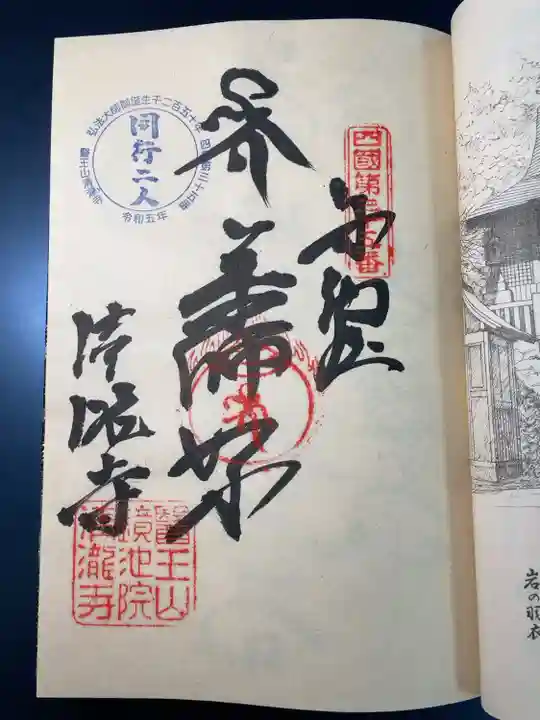 四國第三十五番
奉納
本尊
薬師如来
清瀧寺
醫王山
鏡池院
清瀧寺
弘法大師御誕生千二百五十年
四国第三十五番
醫王山清瀧寺
同行二人
令和五年
岩の羽衣